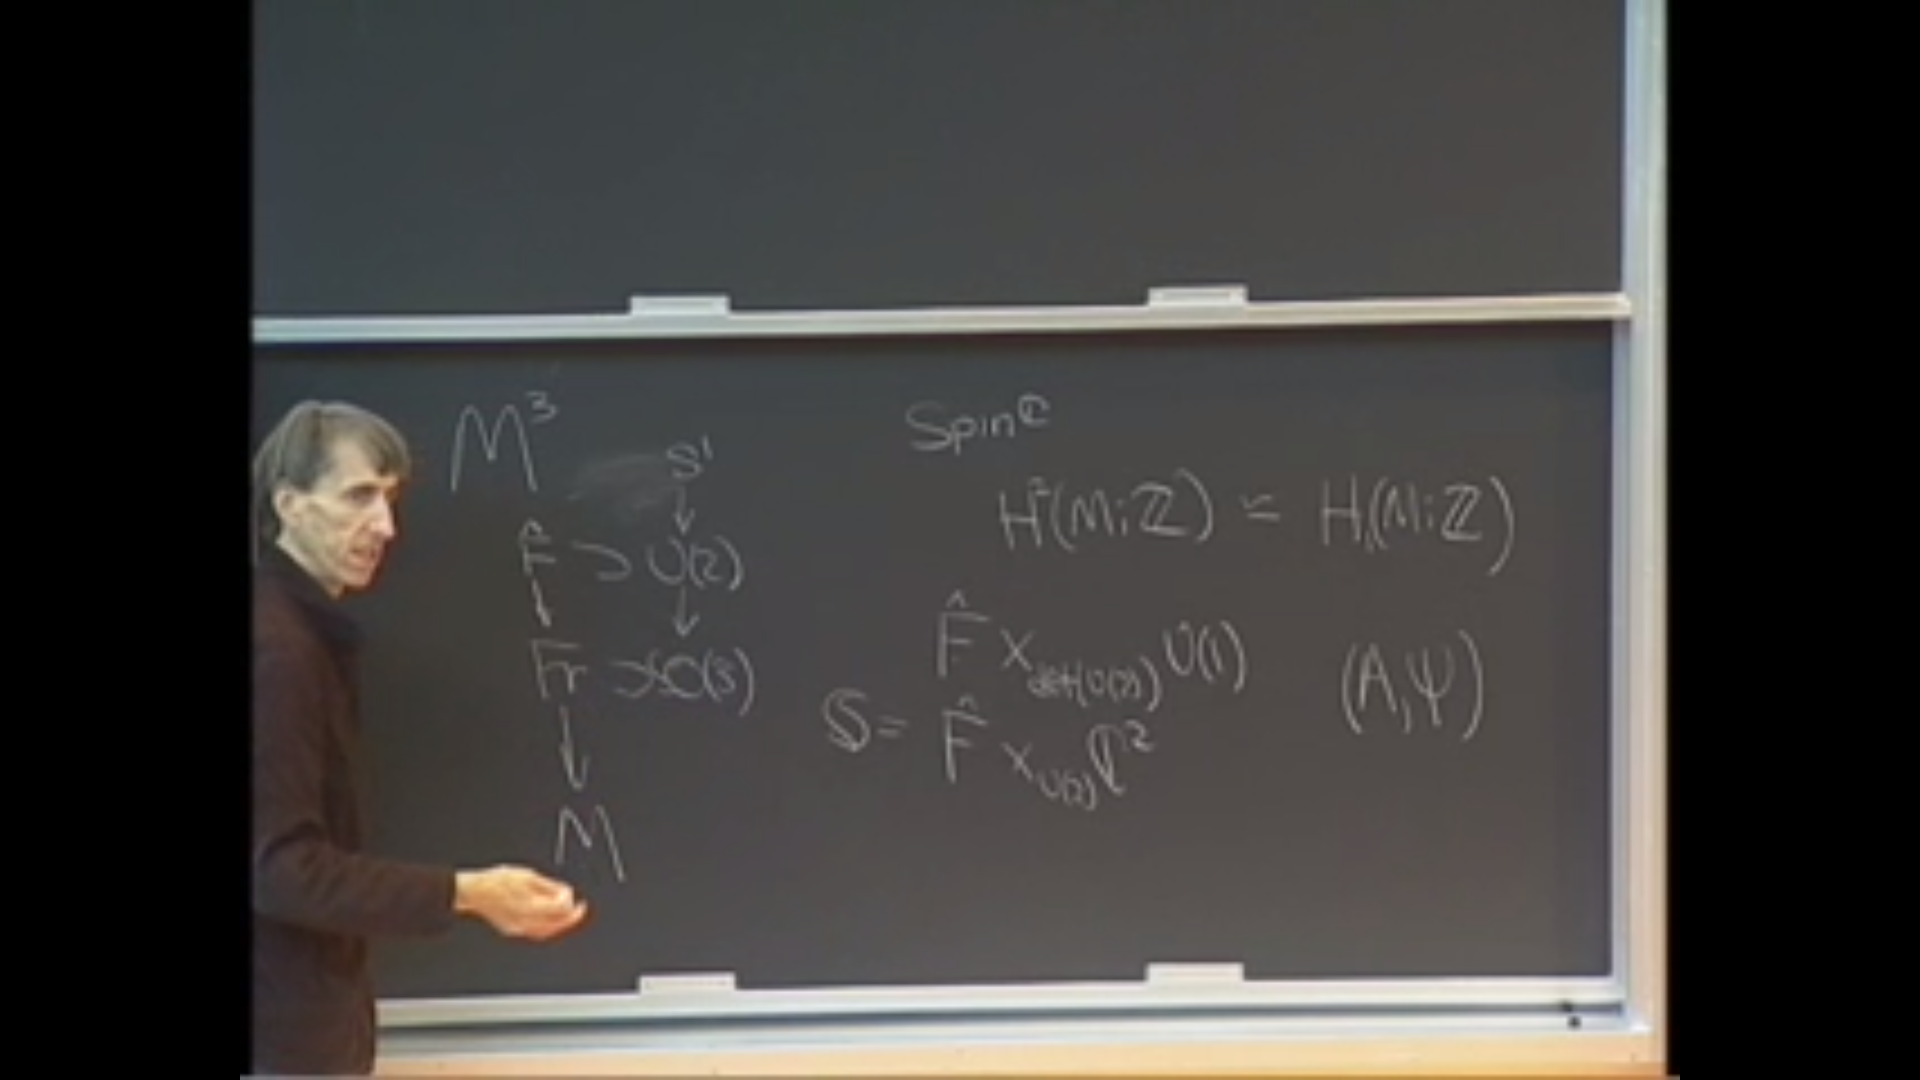 M³
S¹
↓
F̂ ⊃ U(2)
↓ ↓
Fr ⊃ SO(3)
↓
M
Spin^ℂ
H²(M;ℤ) ≃ H₁(M;ℤ)
F̂ ×_{det(U(2))} U(1)
𝕊 = F̂ ×_{U(2)} ℂ²
(A,Ψ)